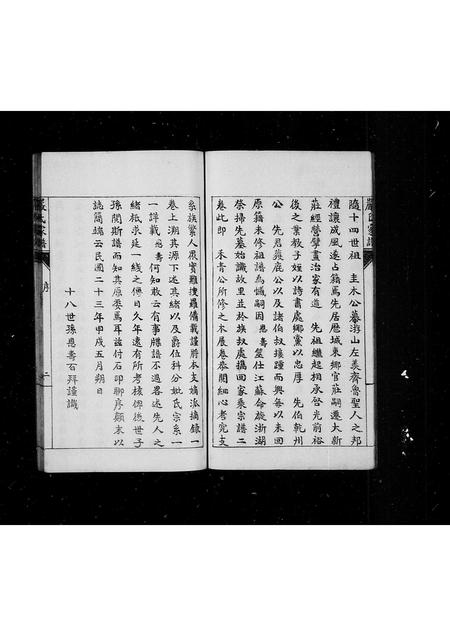 隨十四世祖 圭木公慕游山左美齊魯聖人之邦
禮讓成風遂占籍焉先居歷城來鄉官莊嗣遷大新
莊經營擘畫治家有道 先祖繼起相承啓光前裕
後之業教子姪以詩書處鄉黨以忠厚 先伯乾州
公 先君蕤庭公以及諸伯叔接踵而興每以未回
原籍未修祖譜為憾嗣因恩壽筮仕江蘇侖旋浙湖
祭掃先墓始識故里並於族叔處攜回家乘宗譜二
卷此即 禾青公所修之本展卷恭閱細心考究支
系族繁人眾實難搜羅備載謹將本支嫡派摘錄一
卷上溯其源下述其緒以及爵位科分妣氏宗系一
一詳載恩壽何知敢云有事譜牒不過畧述先人之
緒抵求延一線之傳日久年遠有所考核俾後世子
孫開斯譜而知其原委焉耳茲付石印聊序顛末以
誌簡端云民國二十三年甲戌五月朔日
十八世孫恩壽百拜謹識
嚴氏家譜
序
二